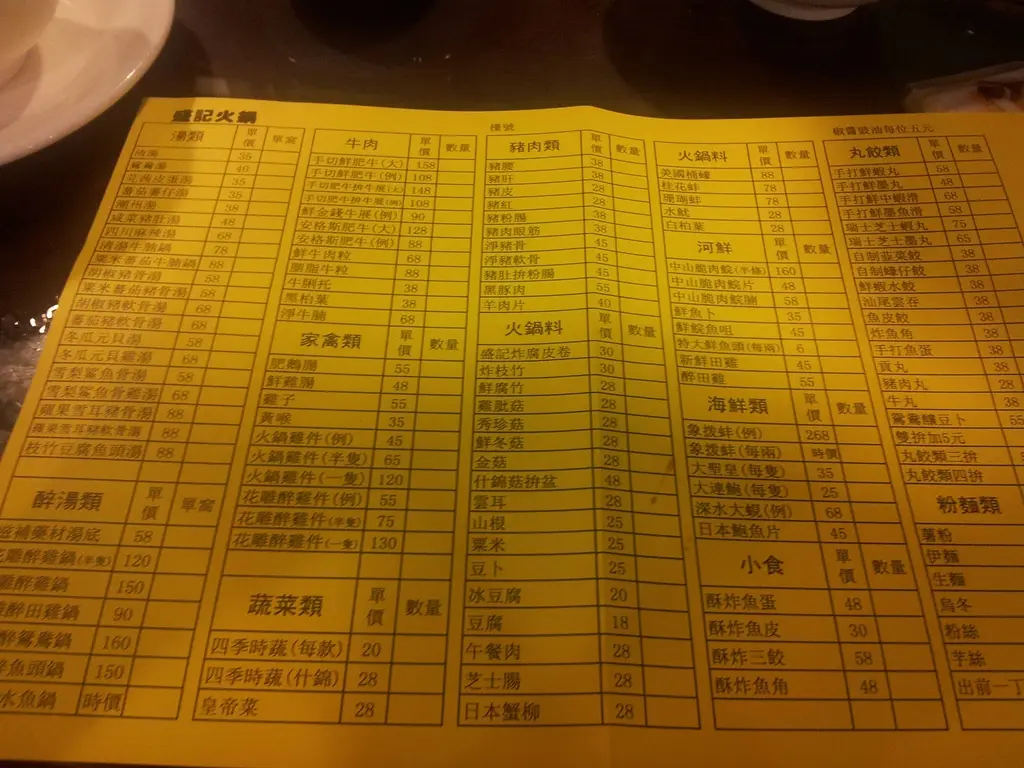 盛記火鍋
樓號
椒醬豉油每位五元
湯類 單價 單窩
清湯 35
40
芫茜皮蛋湯 35
蕃茄薯仔湯 35
潮州湯 38
咸菜豬肚湯 48
四川麻辣湯 68
清湯牛腩鍋 78
粟米蕃茄牛腩鍋 88
胡椒豬骨湯 58
粟米蕃茄豬骨湯 58
胡椒豬軟骨湯 68
蕃茄豬軟骨湯 68
冬瓜元貝湯 58
冬瓜元貝雞湯 68
雪梨鯊魚骨湯 58
雪梨鯊魚骨雞湯 68
蘋果雪耳豬骨湯 88
蘋果雪耳豬軟骨湯 88
枝竹豆腐魚頭湯 88
醉湯類 單價 單窩
滋補藥材湯底 58
花雕醉雞鍋(半隻) 120
雕醉雞鍋 150
醉田雞鍋 90
醉鴛鴦鍋 160
魚頭鍋 150
水魚鍋 時價
牛肉 單價 數量
手切鮮肥牛(大) 158
手切鮮肥牛(例) 108
手切肥牛拚牛展(大) 148
手切肥牛拚牛展(例) 108
鮮金錢牛展(例) 90
安格斯肥牛(大) 128
安格斯肥牛(例) 88
鮮牛肉粒 68
胭脂牛粒 88
牛脷托 38
黑柏葉 38
淨牛腩 68
家禽類 單價 數量
肥鵝腸 55
鮮雞腸 48
雞子 55
黃喉 35
火鍋雞件(例) 45
火鍋雞件(半隻) 65
火鍋雞件(一隻) 120
花雕醉雞件(例) 55
花雕醉雞件(半隻) 75
花雕醉雞件(一隻) 130
蔬菜類 單價 數量
四季時蔬(每款) 20
四季時蔬(什錦) 28
皇帝菜 28
豬肉類 單價 數量
豬腰 38
豬肝 38
豬皮 28
豬紅 28
豬粉腸 38
豬肉眼筋 38
淨豬骨 45
淨豬軟骨 45
豬肚拚粉腸 45
黑豚肉 55
羊肉片 40
火鍋料 單價 數量
盛記炸腐皮卷 30
炸枝竹 30
鮮腐竹 28
雞肶菇 28
秀珍菇 28
鮮冬菇 28
金菇 28
什錦菇拚盆 48
雲耳 28
山根 25
粟米 25
豆卜 25
冰豆腐 20
豆腐 18
午餐肉 28
芝士腸 28
日本蟹柳 28
火鍋料 單價 數量
美國桶蠔 88
桂花蚌 78
珊瑚蚌 78
水魷 28
白柏葉 28
河鮮 單價 數量
中山脆肉鯇(半條) 160
中山脆肉鯇片 48
中山脆肉鯇腩 58
鮮魚卜 35
鮮鯇魚咀 45
特大鮮魚頭(每兩) 6
新鮮田雞 45
醉田雞 55
海鮮類 單價 數量
象拔蚌(例) 268
象拔蚌(每兩) 時價
大聖皇(每隻) 35
大連鮑(每隻) 25
深水大蜆(例) 68
日本鮑魚片 45
小食 單價 數量
酥炸魚蛋 48
酥炸魚皮 30
酥炸三餃 58
酥炸魚角 48
丸餃類 單價 數量
手打鮮蝦丸 58
手打鮮墨丸 48
手打鮮中蝦滑 68
手打鮮墨魚滑 58
瑞士芝士蝦丸 75
瑞士芝士墨丸 65
自制韮菜餃 38
自制蠔仔餃 38
鮮蝦水餃 38
汕尾雲吞 38
魚皮餃 38
炸魚角 38
手打魚蛋 38
貢丸 38
豬肉丸 28
牛丸 38
鴛鴦釀豆卜 55
雙拚加5元
丸餃類三拚
丸餃類四拚
粉麵類
薯粉
伊麵
生麵
烏冬
粉絲
芋絲
出前一丁